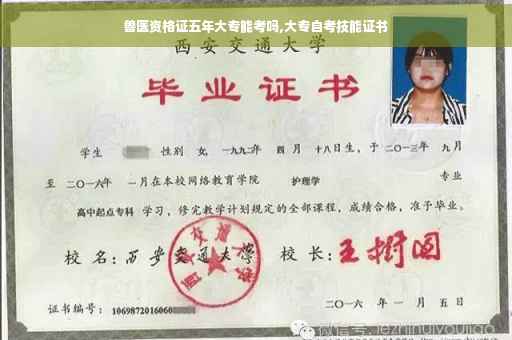 兽医资格证五年大专能考吗,大专自考技能证书
西安交通大学
毕业证书
学生 性别 女,一九九二年 四月 十八日生,于二〇一三年 九月
至 二〇一六年 一月在本校网络教育学院 护理学 专业
高中起点专科 学习,修完教学计划规定的全部课程,成绩合格,准予毕业。
校名:西安交通大学 校长:王树国
西安交通大学
证书编号:1069872016060
二〇一六年 一月 五日
微信号:jezhihuiyoujiao